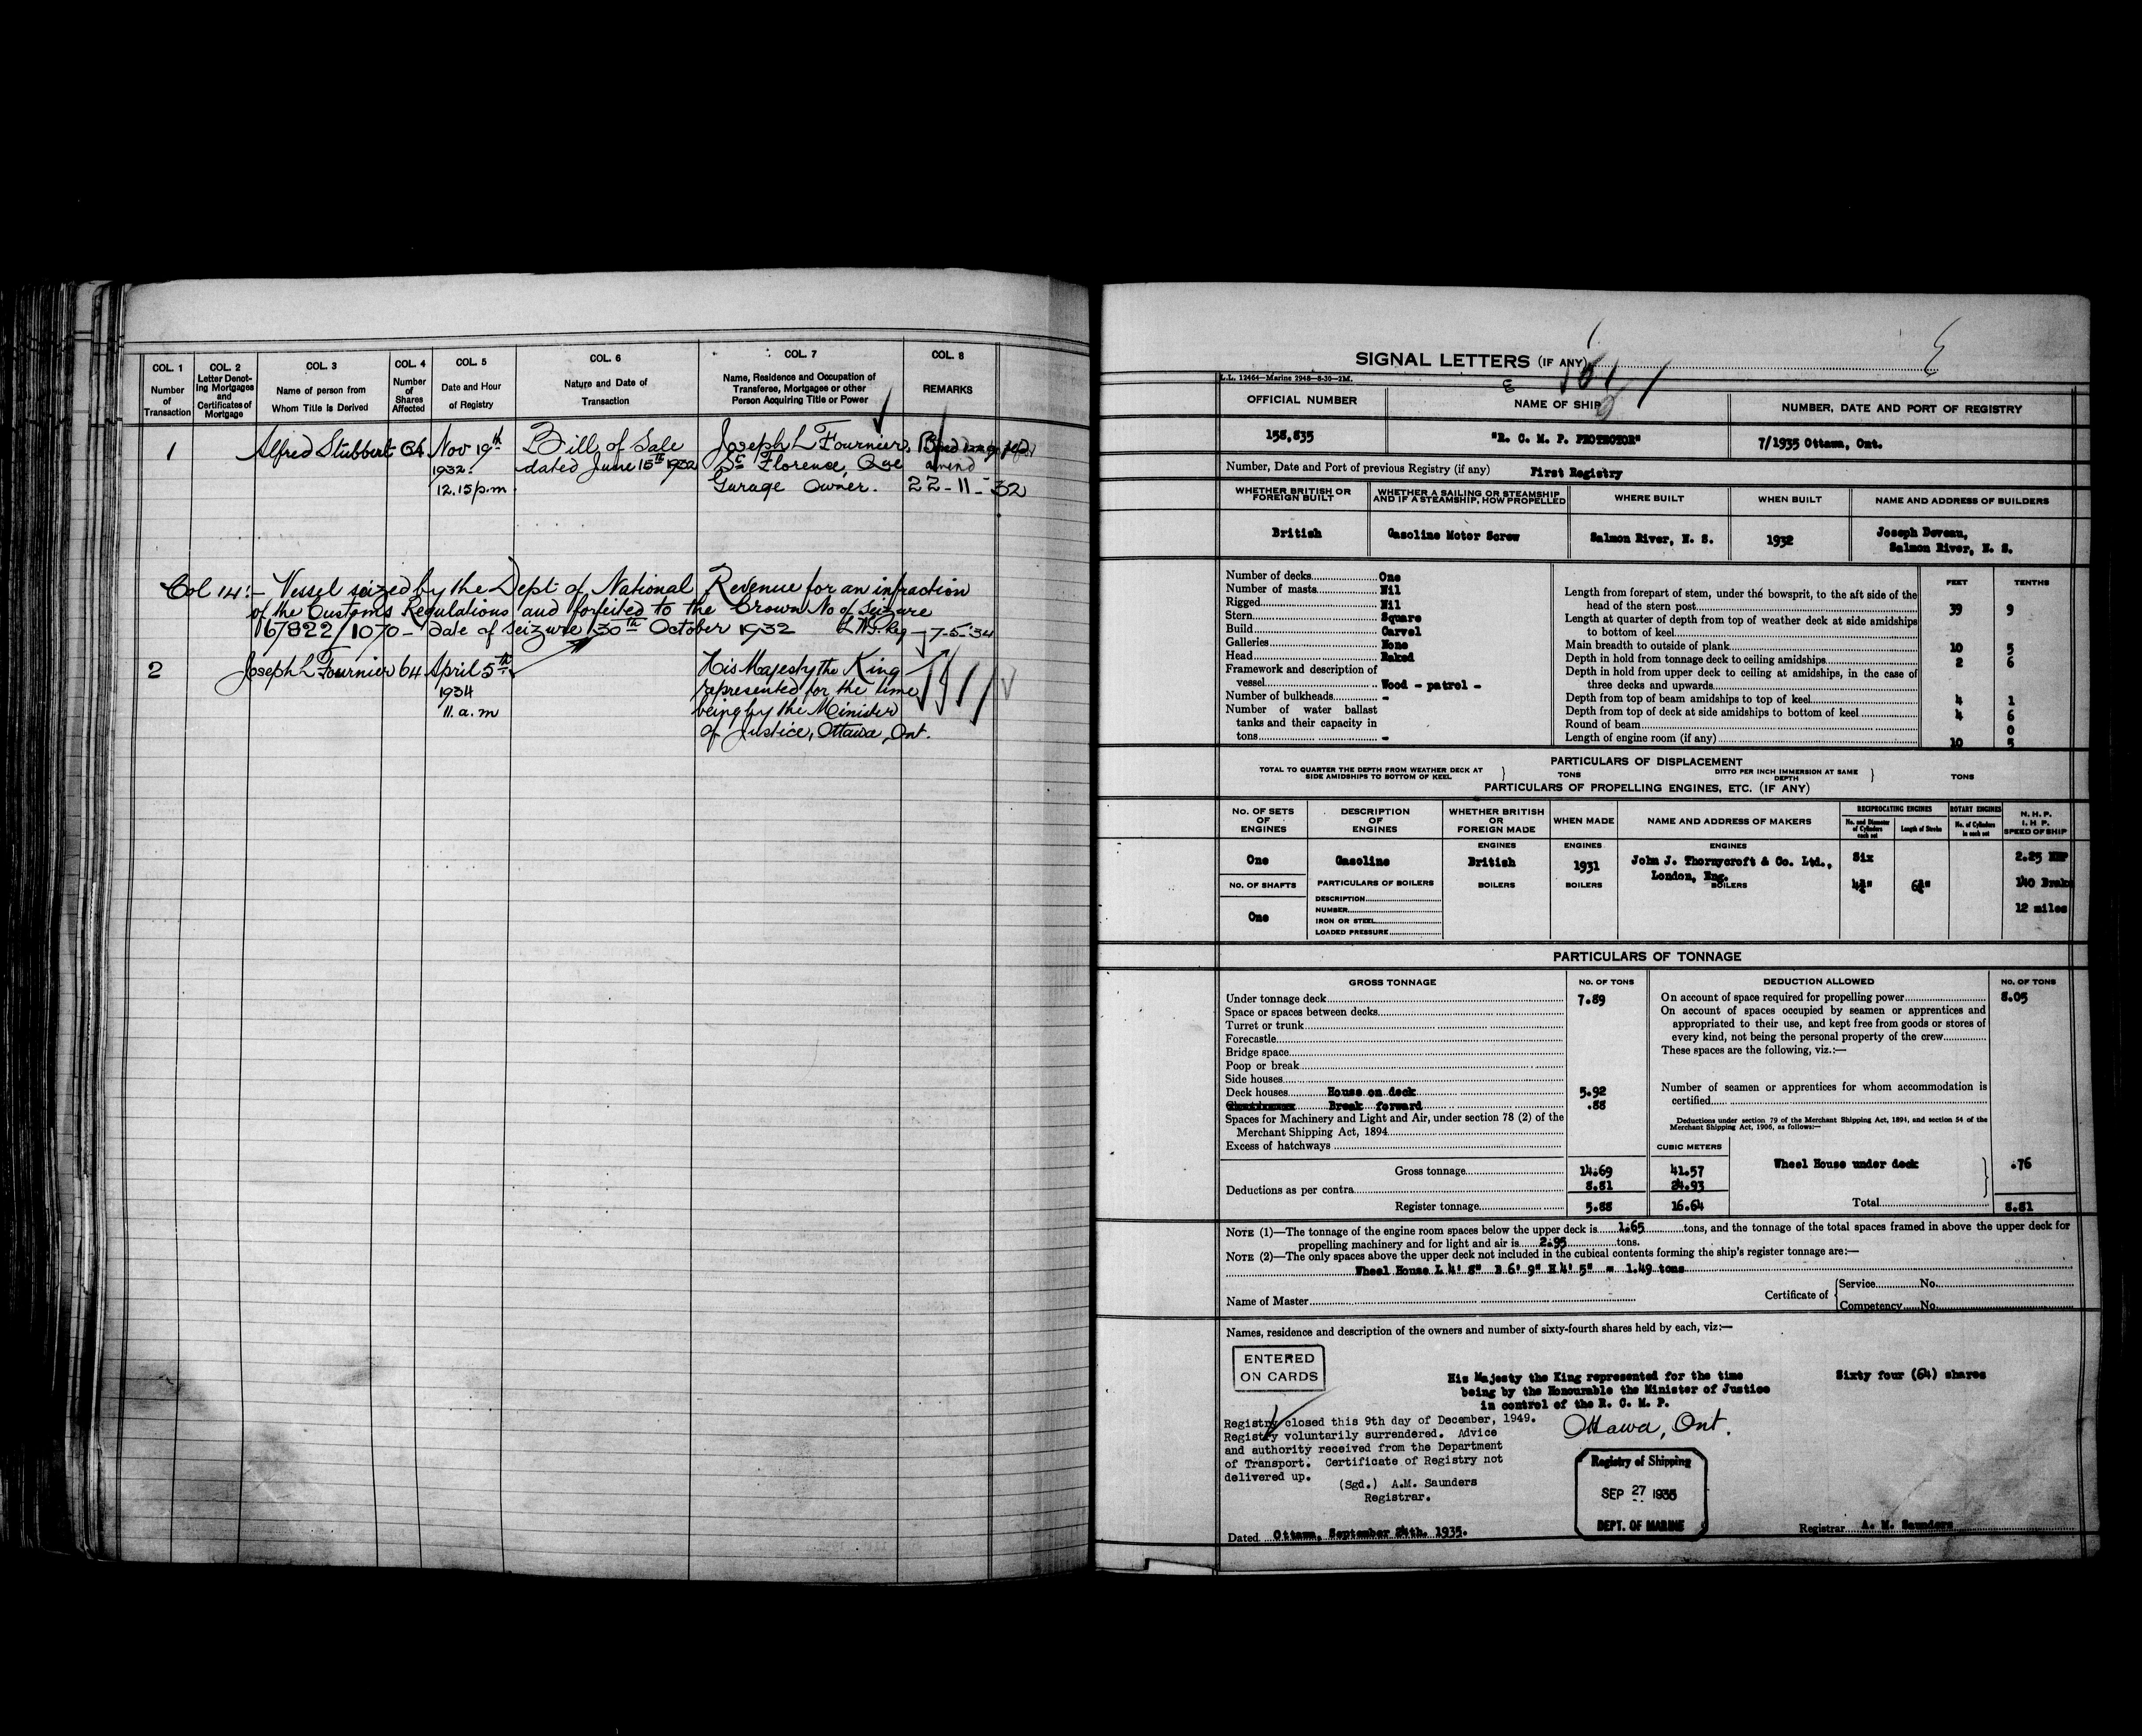 COL. 1 COL. 2 COL. 3 COL. 4 COL. 5 COL. 6 COL. 7 COL. 8
Number of Transaction
Letter Denoting Mortgages and Certificates of Mortgage
Name of person from Whom Title is Derived
Number of Shares Affected
Date and Hour of Registry
Nature and Date of Transaction
Name, Residence and Occupation of Transferee, Mortgagee or other Person Acquiring Title or Power
REMARKS
1 Alfred Stubbert 64 Nov 19th Bill of Sale Joseph L Fournier,
1932. dated June 15th 1932 St Florence, Que
12.15 p.m. Garage Owner. 22-11-32
Col 14:- Vessel seized by the Dept of National Revenue for an infraction
of the Customs Regulations and forfeited to the Crown No of Seizure
67822/1070 - Date of seizure 30th October 1932 7-5-'34
2 Joseph L Fournier 64 April 5th His Majesty the King
1934 represented for the time
11. a.m being by the Minister
of Justice, Ottawa, Ont.
SIGNAL LETTERS (IF ANY)
L.L. 12464—Marine 2948—8-30—2M.
OFFICIAL NUMBER NAME OF SHIP NUMBER, DATE AND PORT OF REGISTRY
158,835 "R. C. M. P. PROTECTOR" 7/1935 Ottawa, Ont.
Number, Date and Port of previous Registry (if any) First Registry
WHETHER BRITISH OR FOREIGN BUILT
WHETHER A SAILING OR STEAMSHIP AND IF A STEAMSHIP, HOW PROPELLED
WHERE BUILT WHEN BUILT NAME AND ADDRESS OF BUILDERS
British Gasoline Motor Screw Salmon River, N. S. 1932 Joseph Deveau,
Salmon River, N. S.
Number of decks One
Number of masts Nil
Rigged Nil
Stern Square
Build Carvel
Galleries None
Head Raked
Framework and description of
vessel Wood - patrol -
Number of bulkheads -
Number of water ballast
tanks and their capacity in
tons -
FEET TENTHS
Length from forepart of stem, under the bowsprit, to the aft side of the
head of the stern post 39 9
Length at quarter of depth from top of weather deck at side amidships
to bottom of keel
Main breadth to outside of plank 10 5
Depth in hold from tonnage deck to ceiling amidships 2 6
Depth in hold from upper deck to ceiling at amidships, in the case of
three decks and upwards
Depth from top of beam amidships to top of keel 4 1
Depth from top of deck at side amidships to bottom of keel 4 6
Round of beam 0
Length of engine room (if any) 10 5
PARTICULARS OF DISPLACEMENT
TOTAL TO QUARTER THE DEPTH FROM WEATHER DECK AT SIDE AMIDSHIPS TO BOTTOM OF KEEL } TONS DITTO PER INCH IMMERSION AT SAME DEPTH } TONS
PARTICULARS OF PROPELLING ENGINES, ETC. (IF ANY)
No. OF SETS OF ENGINES
DESCRIPTION OF ENGINES
WHETHER BRITISH OR FOREIGN MADE
WHEN MADE
NAME AND ADDRESS OF MAKERS
RECIPROCATING ENGINES
No. and Diameter of Cylinders each set
Length of Stroke
ROTARY ENGINES
No. of Cylinders in each set
N. H. P.
I. H. P.
SPEED OF SHIP
ENGINES ENGINES ENGINES
One Gasoline British 1931 John J. Thornycroft & Co. Ltd., Six 2.25 NHP
London, Eng.
No. OF SHAFTS PARTICULARS OF BOILERS BOILERS BOILERS BOILERS 140 Brake
DESCRIPTION
NUMBER
One 12 miles
IRON OR STEEL
LOADED PRESSURE
PARTICULARS OF TONNAGE
GROSS TONNAGE No. OF TONS DEDUCTION ALLOWED No. OF TONS
Under tonnage deck 7.89
Space or spaces between decks
Turret or trunk
Forecastle
Bridge space
Poop or break
Side houses
Deck houses House on deck 5.92
Break forward .88
Spaces for Machinery and Light and Air, under section 78 (2) of the
Merchant Shipping Act, 1894
Excess of hatchways
Gross tonnage 14.69 41.57
Deductions as per contra 8.81 24.93
Register tonnage 5.88 16.64
On account of space required for propelling power 8.05
On account of spaces occupied by seamen or apprentices and
appropriated to their use, and kept free from goods or stores of
every kind, not being the personal property of the crew
These spaces are the following, viz.:—
Number of seamen or apprentices for whom accommodation is
certified
Deductions under section 79 of the Merchant Shipping Act, 1894, and section 54 of the
Merchant Shipping Act, 1906, as follows:—
CUBIC METERS
Wheel House under deck .76
Total 8.81
NOTE (1)—The tonnage of the engine room spaces below the upper deck is 1.65 tons, and the tonnage of the total spaces framed in above the upper deck for
propelling machinery and for light and air is 2.95 tons.
NOTE (2)—The only spaces above the upper deck not included in the cubical contents forming the ship's register tonnage are:—
Wheel House L 4' 8" B 6' 9" H 4' 5" = 1.49 tons
Name of Master Certificate of { Service No.
Competency No.
Names, residence and description of the owners and number of sixty-fourth shares held by each, viz:—
ENTERED
ON CARDS
His Majesty the King represented for the time Sixty four (64) shares
being by the Honourable the Minister of Justice
in control of the R. C. M. P.
Ottawa, Ont.
Registry closed this 9th day of December, 1949.
Registry voluntarily surrendered. Advice
and authority received from the Department
of Transport. Certificate of Registry not
delivered up.
(Sgd.) A.M. Saunders
Registrar.
Registry of Shipping
SEP 27 1935
DEPT. OF MARINE
Dated Ottawa, September 24th. 1935. Registrar A. M. Saunders